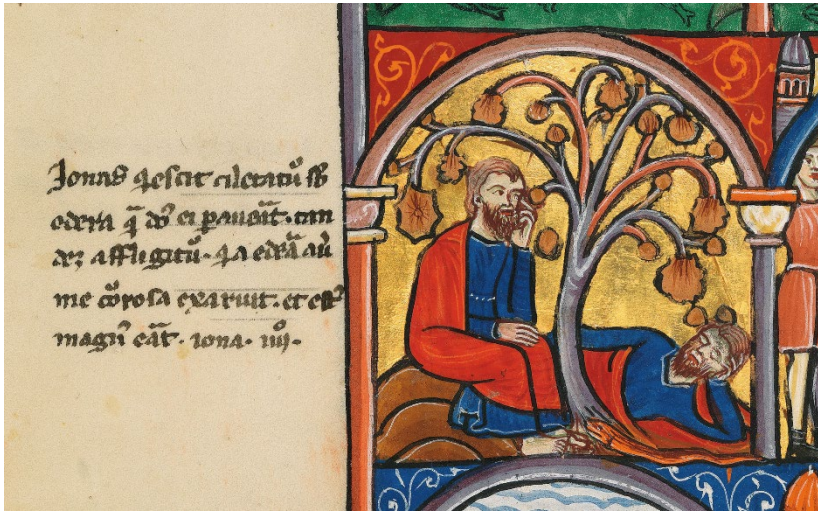 Jonas q̇escit ⁊ letatᷣ sb̄
edera q̄ dō ei p̱auāt. tan
dez affligitᷣ. q̇a edēa a
me cōrosa exaruit. et estᷣ
magn̄ eāt. iona. iiij.